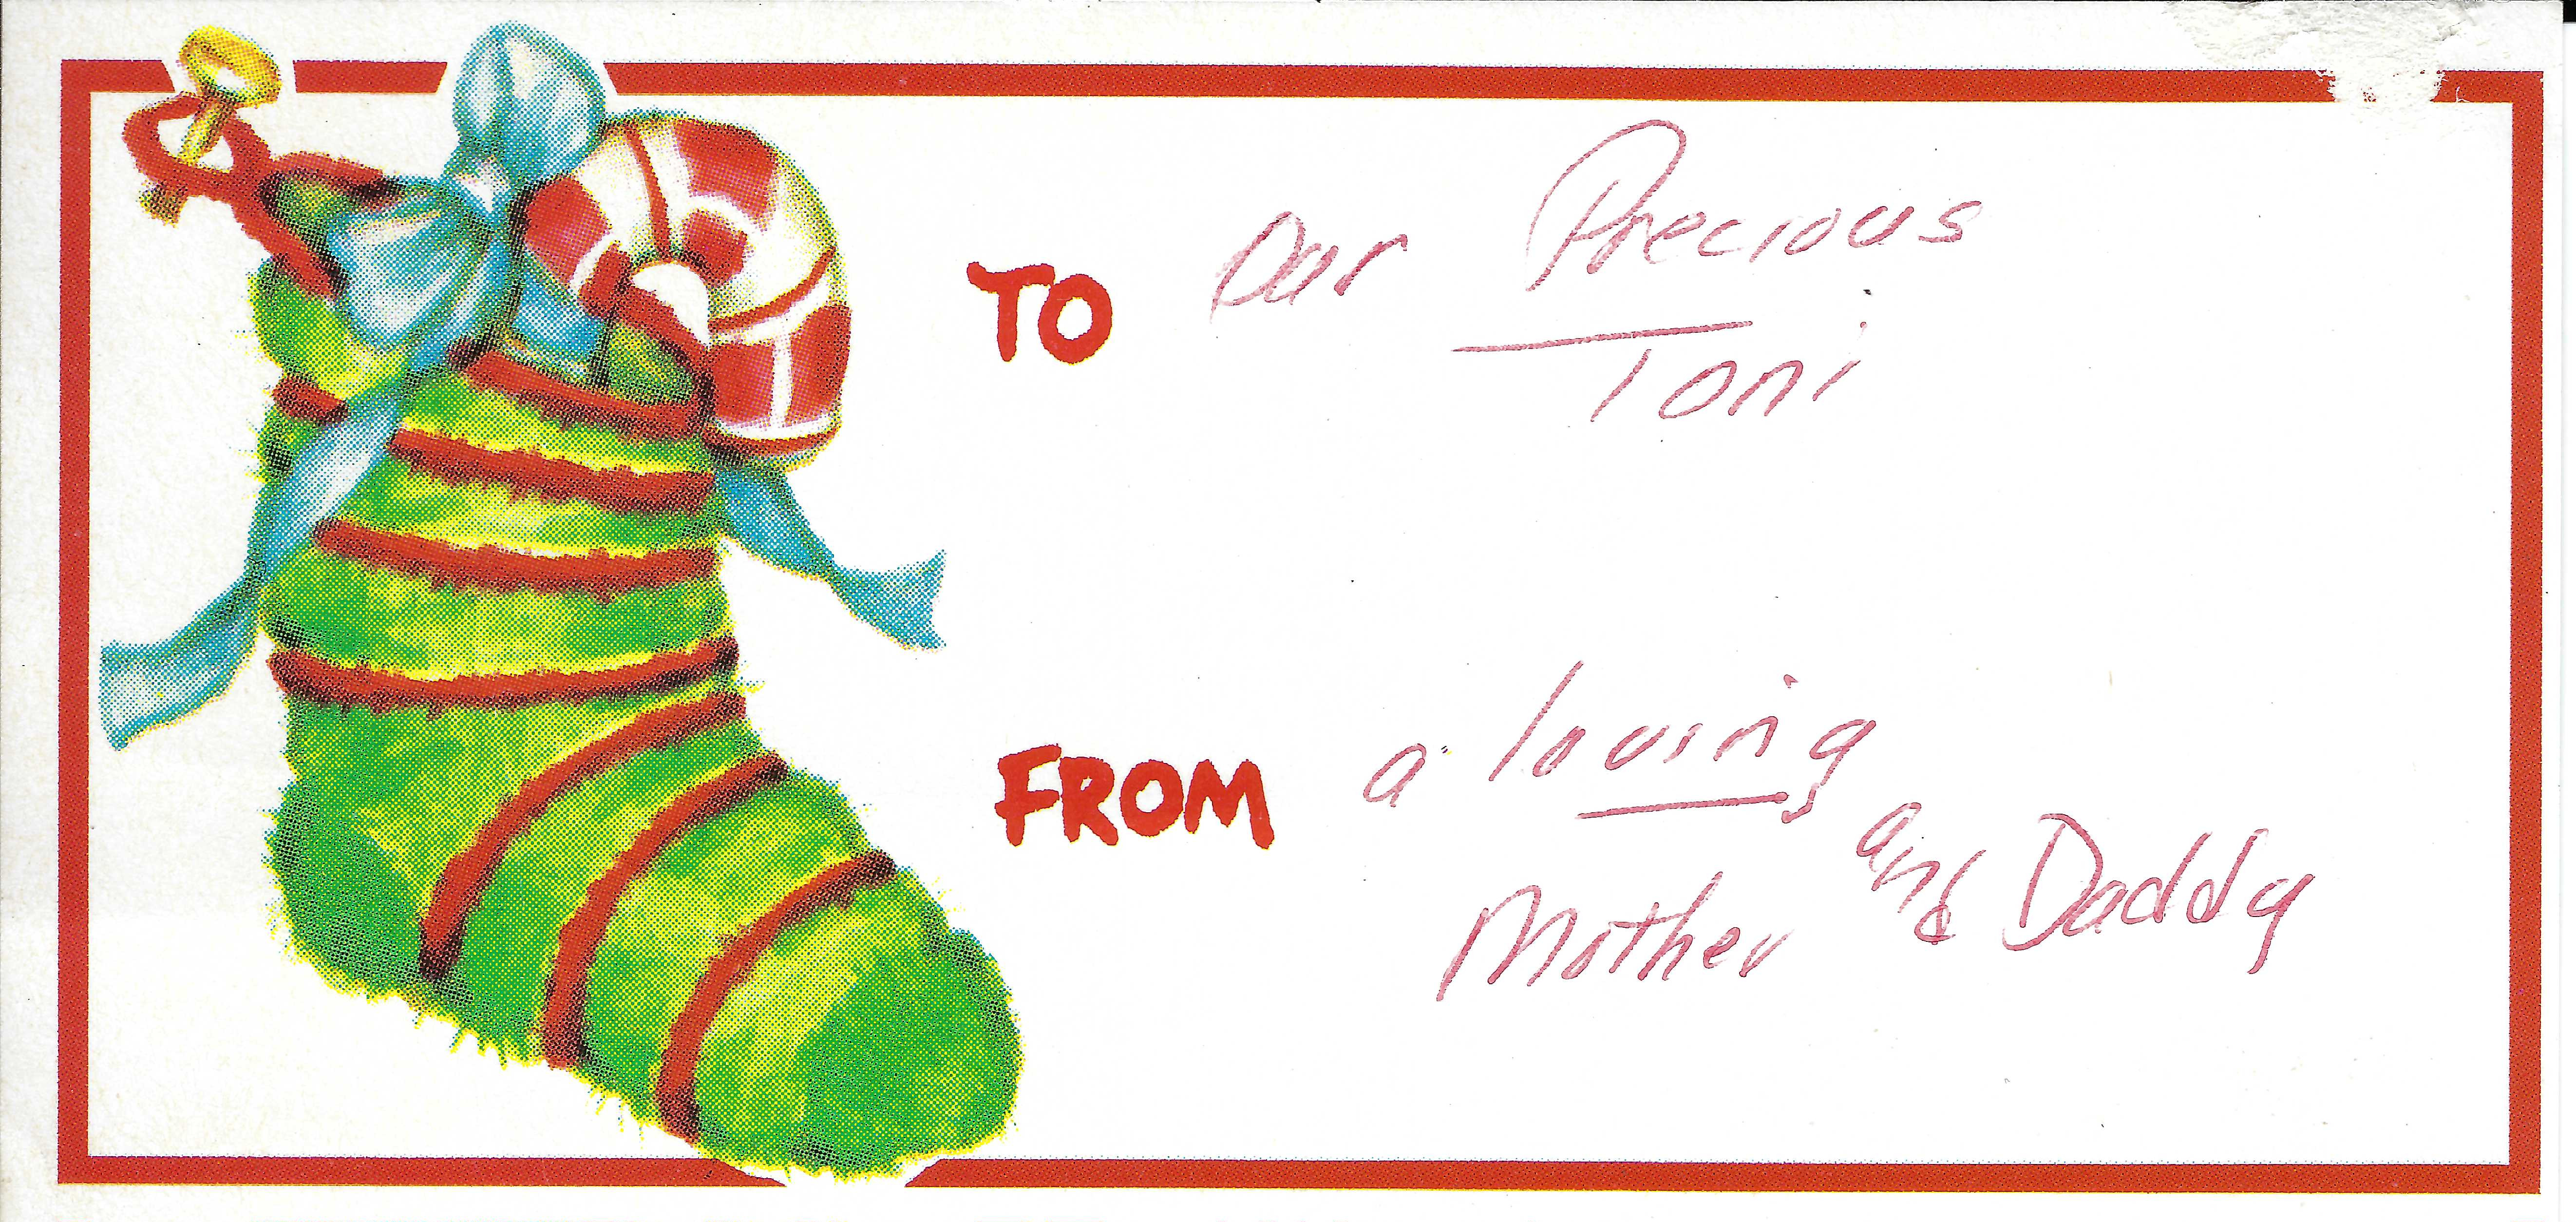 TO Our Precious
Toni
FROM a loving
Mother and Daddy